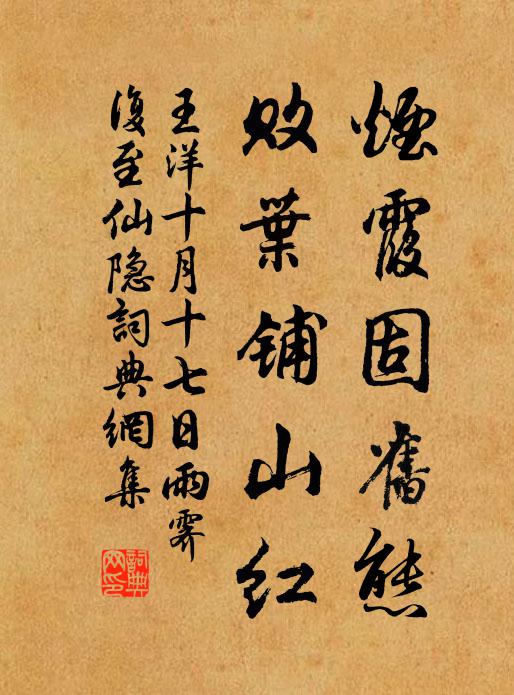 煙霞固舊態
敗葉鋪山紅
王洋十月十七日雨霽
復至仙隐詞典網集
詞典網印